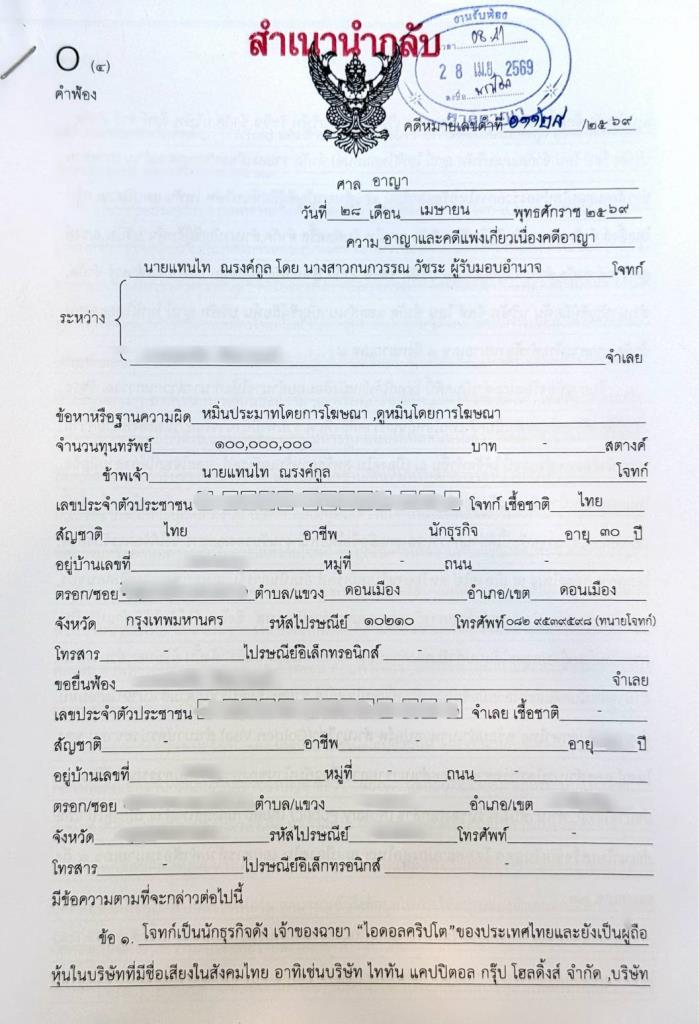 สำเนานำกลับ
งานรับฟ้อง
เวลา
2 8 เม.ย. 2569
ลงชื่อ
ศาลอาญา
O (๔)
คำฟ้อง
คดีหมายเลขดำที่ /๒๕ ๖๙
ศาล อาญา
วันที่ ๒๘ เดือน เมษายน พุทธศักราช ๒๕๖๙
ความ อาญาและคดีแพ่งเกี่ยวเนื่องคดีอาญา
นายแทนไท ณรงค์กูล โดย นางสาวกนกวรรณ วัชระ ผู้รับมอบอำนาจ โจทก์
ระหว่าง
จำเลย
ข้อหาหรือฐานความผิด หมิ่นประมาทโดยการโฆษณา ,ดูหมิ่นโดยการโฆษณา
จำนวนทุนทรัพย์ ๑๐๐,๐๐๐,๐๐๐ บาท - สตางค์
ข้าพเจ้า นายแทนไท ณรงค์กูล โจทก์
เลขประจำตัวประชาชน โจทก์ เชื้อชาติ ไทย
สัญชาติ ไทย อาชีพ นักธุรกิจ อายุ ๓๐ ปี
อยู่บ้านเลขที่ หมู่ที่ - ถนน -
ตรอก/ซอย ตำบล/แขวง ดอนเมือง อำเภอ/เขต ดอนเมือง
จังหวัด กรุงเทพมหานคร รหัสไปรษณีย์ ๑๐๒๑๐ โทรศัพท์ ๐๘๒ ๙๕๓๙๕๙๘ (ทนายโจทก์)
โทรสาร - ไปรษณีย์อิเล็กทรอนิกส์ -
ขอยื่นฟ้อง จำเลย
เลขประจำตัวประชาชน จำเลย เชื้อชาติ -
สัญชาติ - อาชีพ - อายุ ปี
อยู่บ้านเลขที่ หมู่ที่ - ถนน
ตรอก/ซอย ตำบล/แขวง อำเภอ/เขต
จังหวัด รหัสไปรษณีย์ โทรศัพท์ -
โทรสาร - ไปรษณีย์อิเล็กทรอนิกส์ -
มีข้อความตามที่จะกล่าวต่อไปนี้
ข้อ ๑. โจทก์เป็นนักธุรกิจดัง เจ้าของฉายา “ไอดอลคริปโต”ของประเทศไทยและยังเป็นผู้ถือ
หุ้นในบริษัทที่มีชื่อเสียงในสังคมไทย อาทิเช่นบริษัท ไททัน แคปปิตอล กรุ๊ป โฮลดิ้งส์ จำกัด ,บริษัท